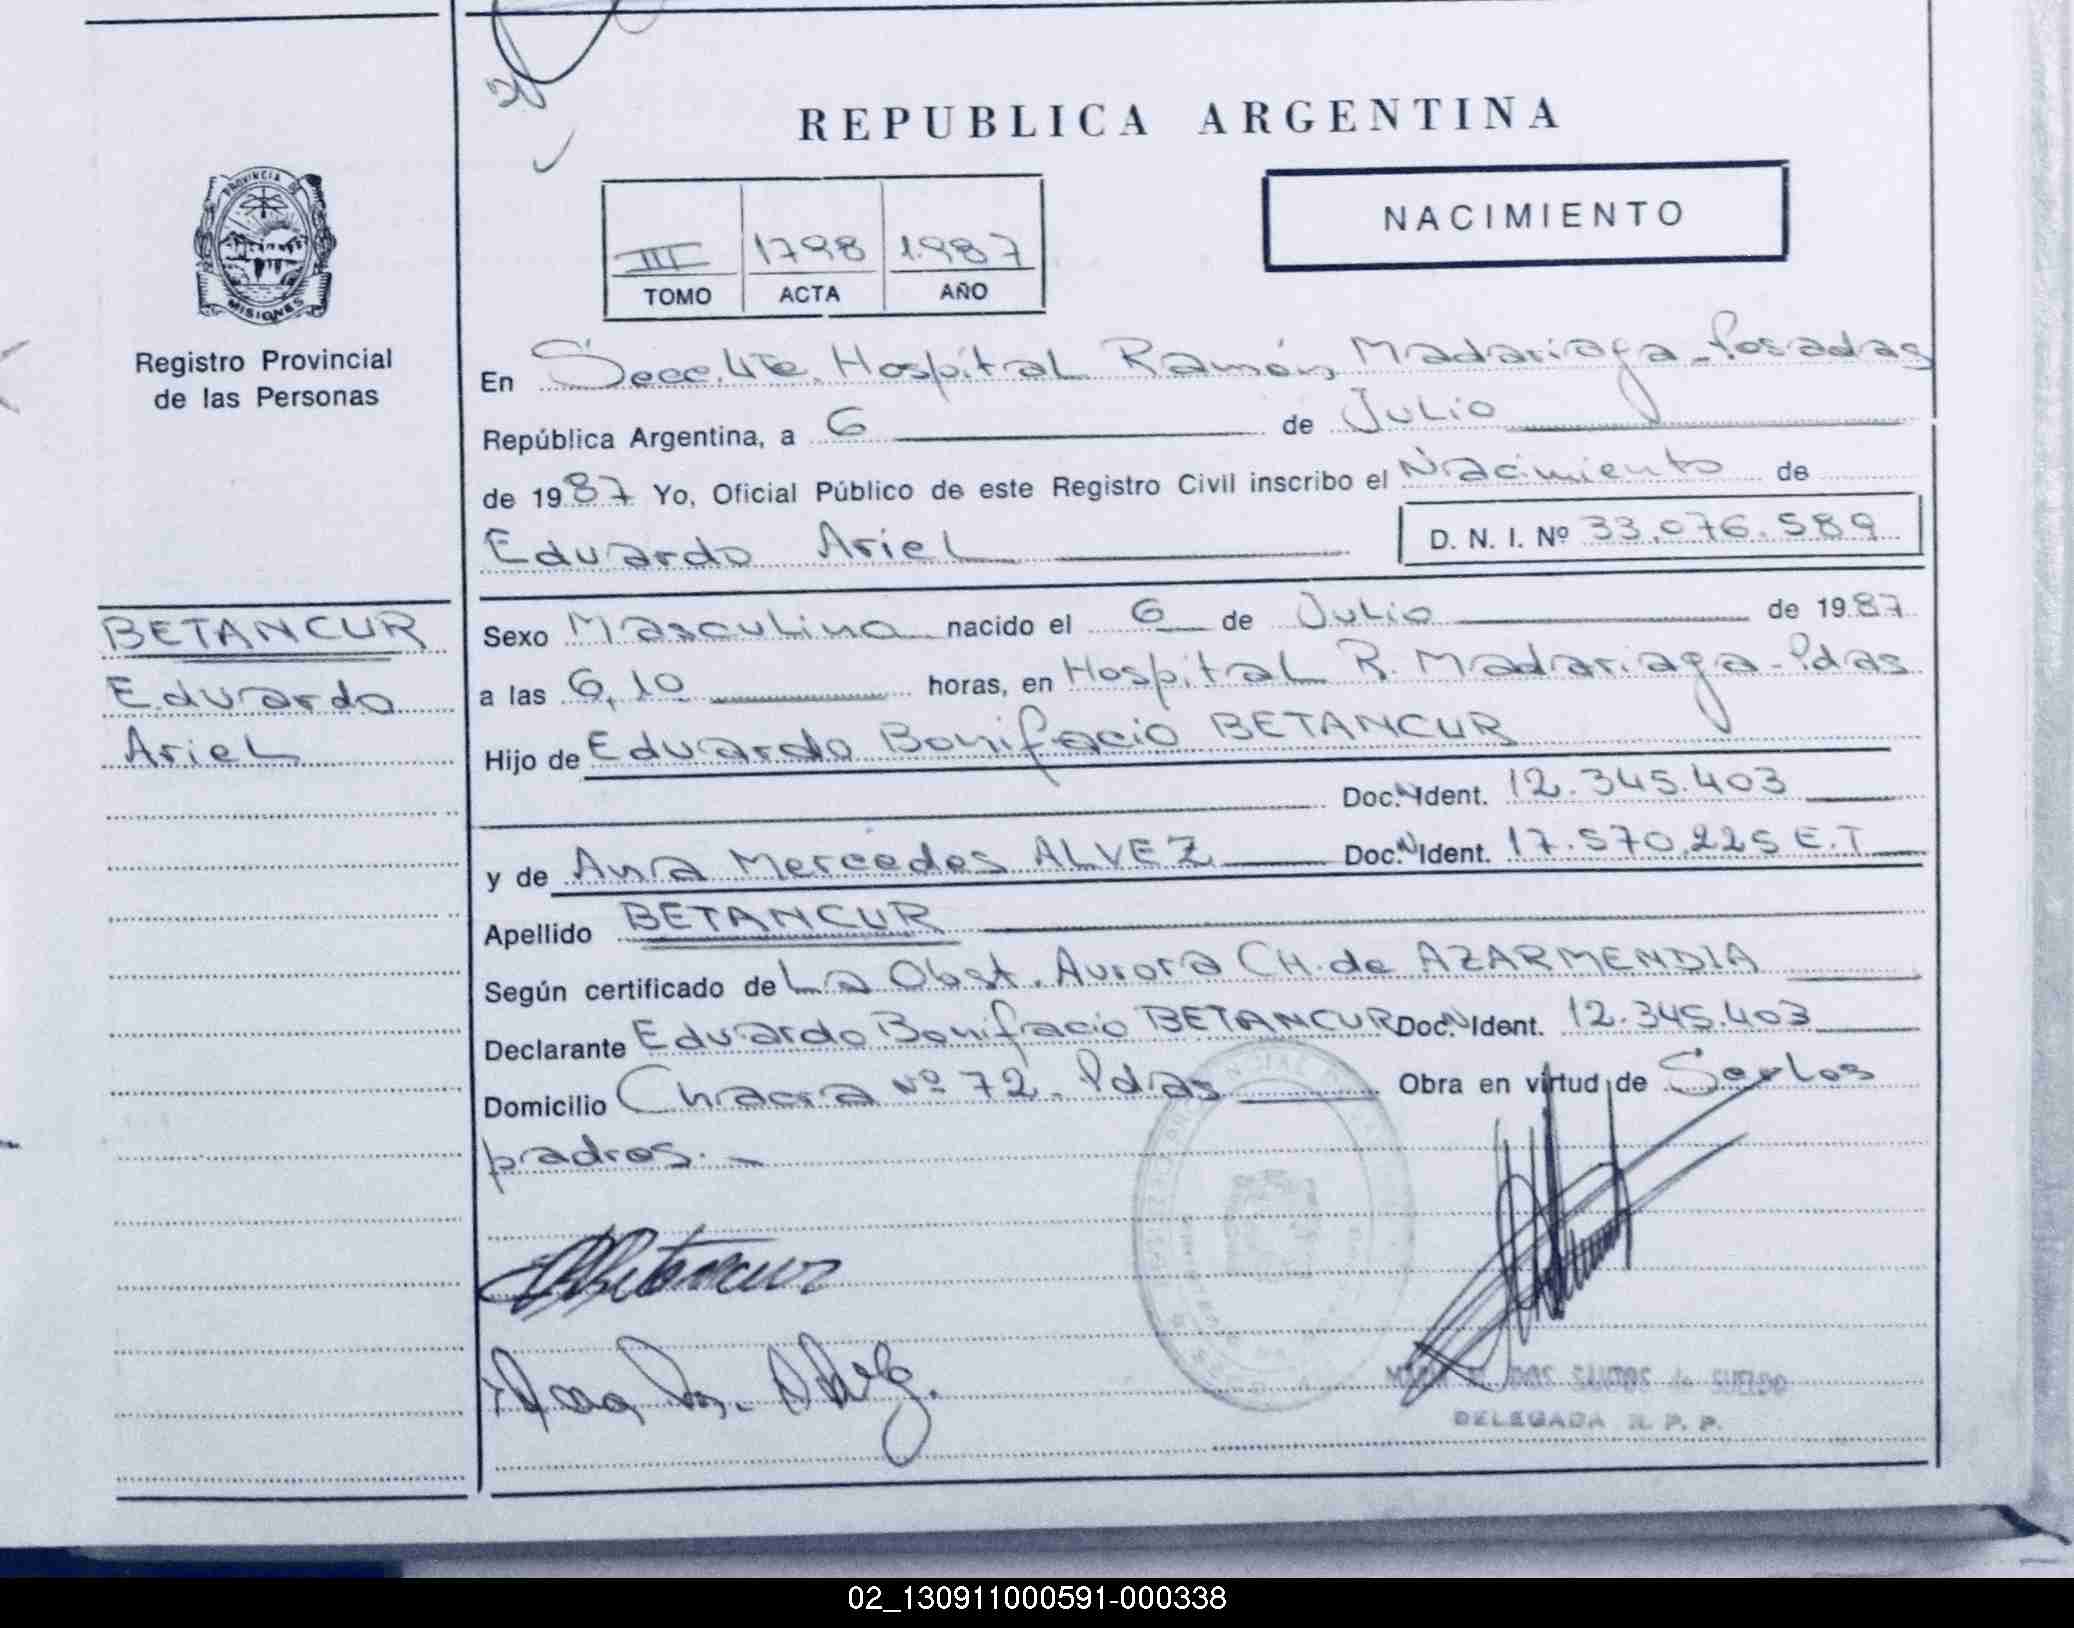 REPUBLICA ARGENTINA
NACIMIENTO
III 1798 1.987
TOMO ACTA AÑO
PROVINCIA DE
MISIONES
Registro Provincial
de las Personas
BETANCUR
Eduardo
Ariel
En Secc. 4ta. Hospital Ramón Madariaga - Posadas
República Argentina, a 6 de Julio
de 1987 Yo, Oficial Público de este Registro Civil inscribo el Nacimiento de
Eduardo Ariel D. N. I. Nº 33.076.589
Sexo Masculino nacido el 6 de Julio de 1987
a las 6,10 horas, en Hospital R. Madariaga - Pdas
Hijo de Eduardo Bonifacio BETANCUR
Doc. N Ident. 12.345.403
y de Ana Mercedes ALVEZ Doc. N Ident. 17.570.225 E.T
Apellido BETANCUR
Según certificado de La Obst. Aurora CH. de AZARMENDIA
Declarante Eduardo Bonifacio BETANCUR Doc. N Ident. 12.345.403
Domicilio Chacra Nº 72. Pdas Obra en virtud de Ser los
padres. -
Betancur
Ana M. Alvez.
DOS SANTOS de
DELEGADA R. P. P.
02_130911000591-000338